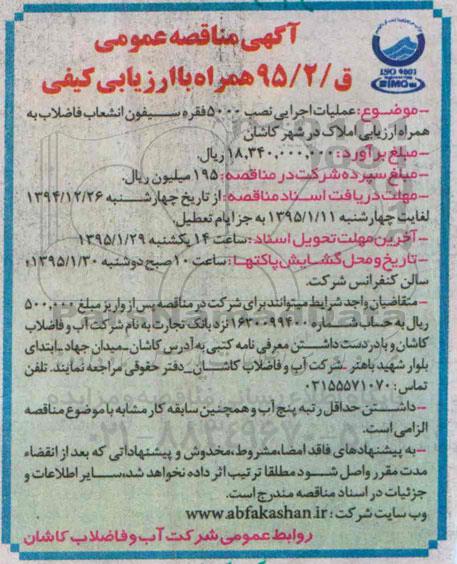 آگهی مناقصه عمومی
ق/۹۵/۲ همراه با ارزیابی کیفی
ISO 9001
SIMO
-موضوع: عملیات اجرایی نصب ۵۰۰۰ فقره سیفون انشعاب فاضلاب به
همراه ارزیابی املاک در شهر کاشان
-مبلغ برآورد: ۱۸،۳۴۰،۰۰۰،۰۰۰ ریال.
-مبلغ سپرده شرکت در مناقصه: ۱۹۵ میلیون ریال.
-مهلت دریافت اسناد مناقصه: از تاریخ چهارشنبه ۱۳۹۴/۱۲/۲۶
لغایت چهارشنبه ۱۳۹۵/۱/۱۱ به جز ایام تعطیل.
-آخرین مهلت تحویل اسناد: ساعت ۱۴ یکشنبه ۱۳۹۵/۱/۲۹
-تاریخ و محل گشایش پاکتها: ساعت ۱۰ صبح دوشنبه ۱۳۹۵/۱/۳۰؛
سالن کنفرانس شرکت.
-متقاضیان واجد شرایط میتوانند برای شرکت در مناقصه پس از واریز مبلغ ۵۰۰،۰۰۰
ریال به حساب شماره ۱۶۳۰۰۹۹۴۰۰ نزد بانک تجارت به نام شرکت آب و فاضلاب
کاشان و با در دست داشتن معرفی نامه کتبی به آدرس کاشان-میدان جهاد-ابتدای
بلوار شهید باهنر-شرکت آب و فاضلاب کاشان-دفتر حقوقی مراجعه نمایند. تلفن
تماس: ۰۳۱۵۵۵۷۱۰۷۰
-داشتن حداقل رتبه پنج آب و همچنین سابقه کار مشابه با موضوع مناقصه
الزامی است.
-به پیشنهادهای فاقد امضا، مشروط، مخدوش و پیشنهاداتی که بعد از انقضاء
مدت مقرر واصل شود مطلقا ترتیب اثر داده نخواهد شد، سایر اطلاعات و
جزئیات در اسناد مناقصه مندرج است.
وب سایت شرکت: www.abfakashan.ir
روابط عمومی شرکت آب و فاضلاب کاشان